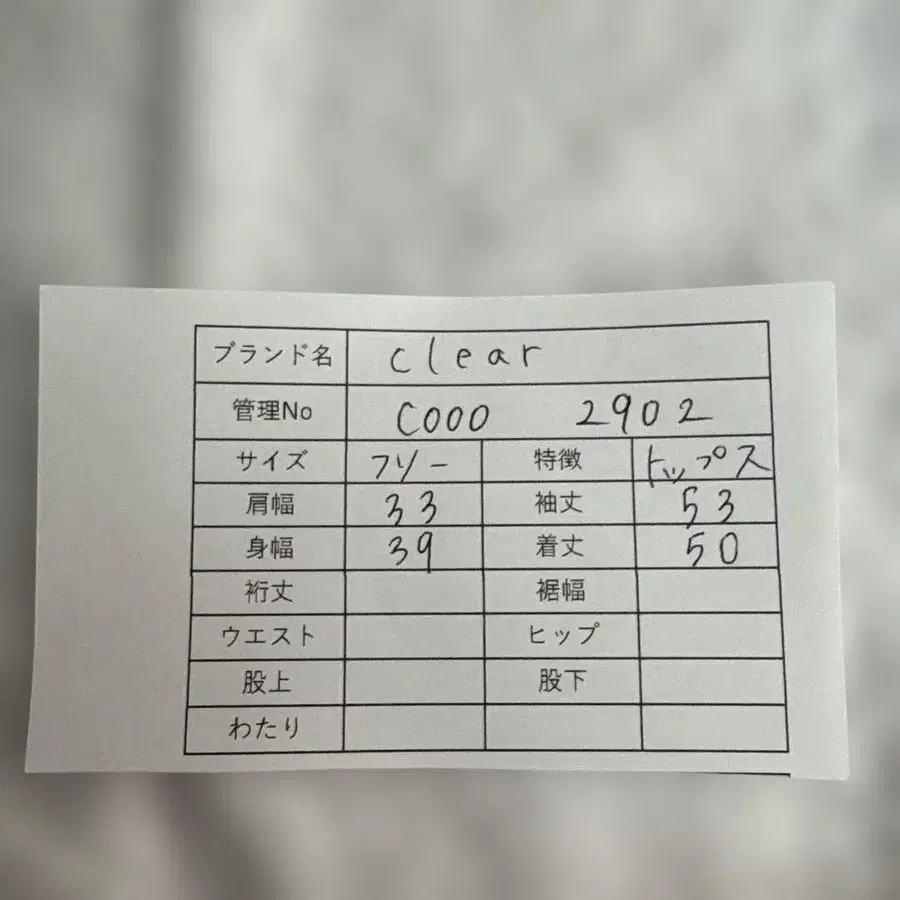 ブランド名 clear
管理No C000 2902
サイズ フリー 特徴 トップス
肩幅 33 袖丈 53
身幅 39 着丈 50
裄丈 裾幅
ウエスト ヒップ
股上 股下
わたり